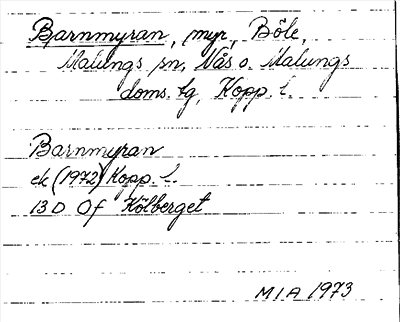 Barnmyran, myr, Böle,
Malungs sn, Nås o. Malungs
doms. tg, Kopp. l.
Barnmyran
ek (1972) Kopp. l.
13D 0f Kölberget
MIA 1973